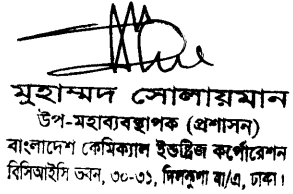 মুহাম্মদ সোলায়মান
উপ-মহাব্যবস্থাপক (প্রশাসন)
বাংলাদেশ কেমিক্যাল ইন্ডাষ্ট্রিজ কর্পোরেশন
বিসিআইসি ভবন, ৩০-৩১, দিলকুশা বা/এ, ঢাকা।